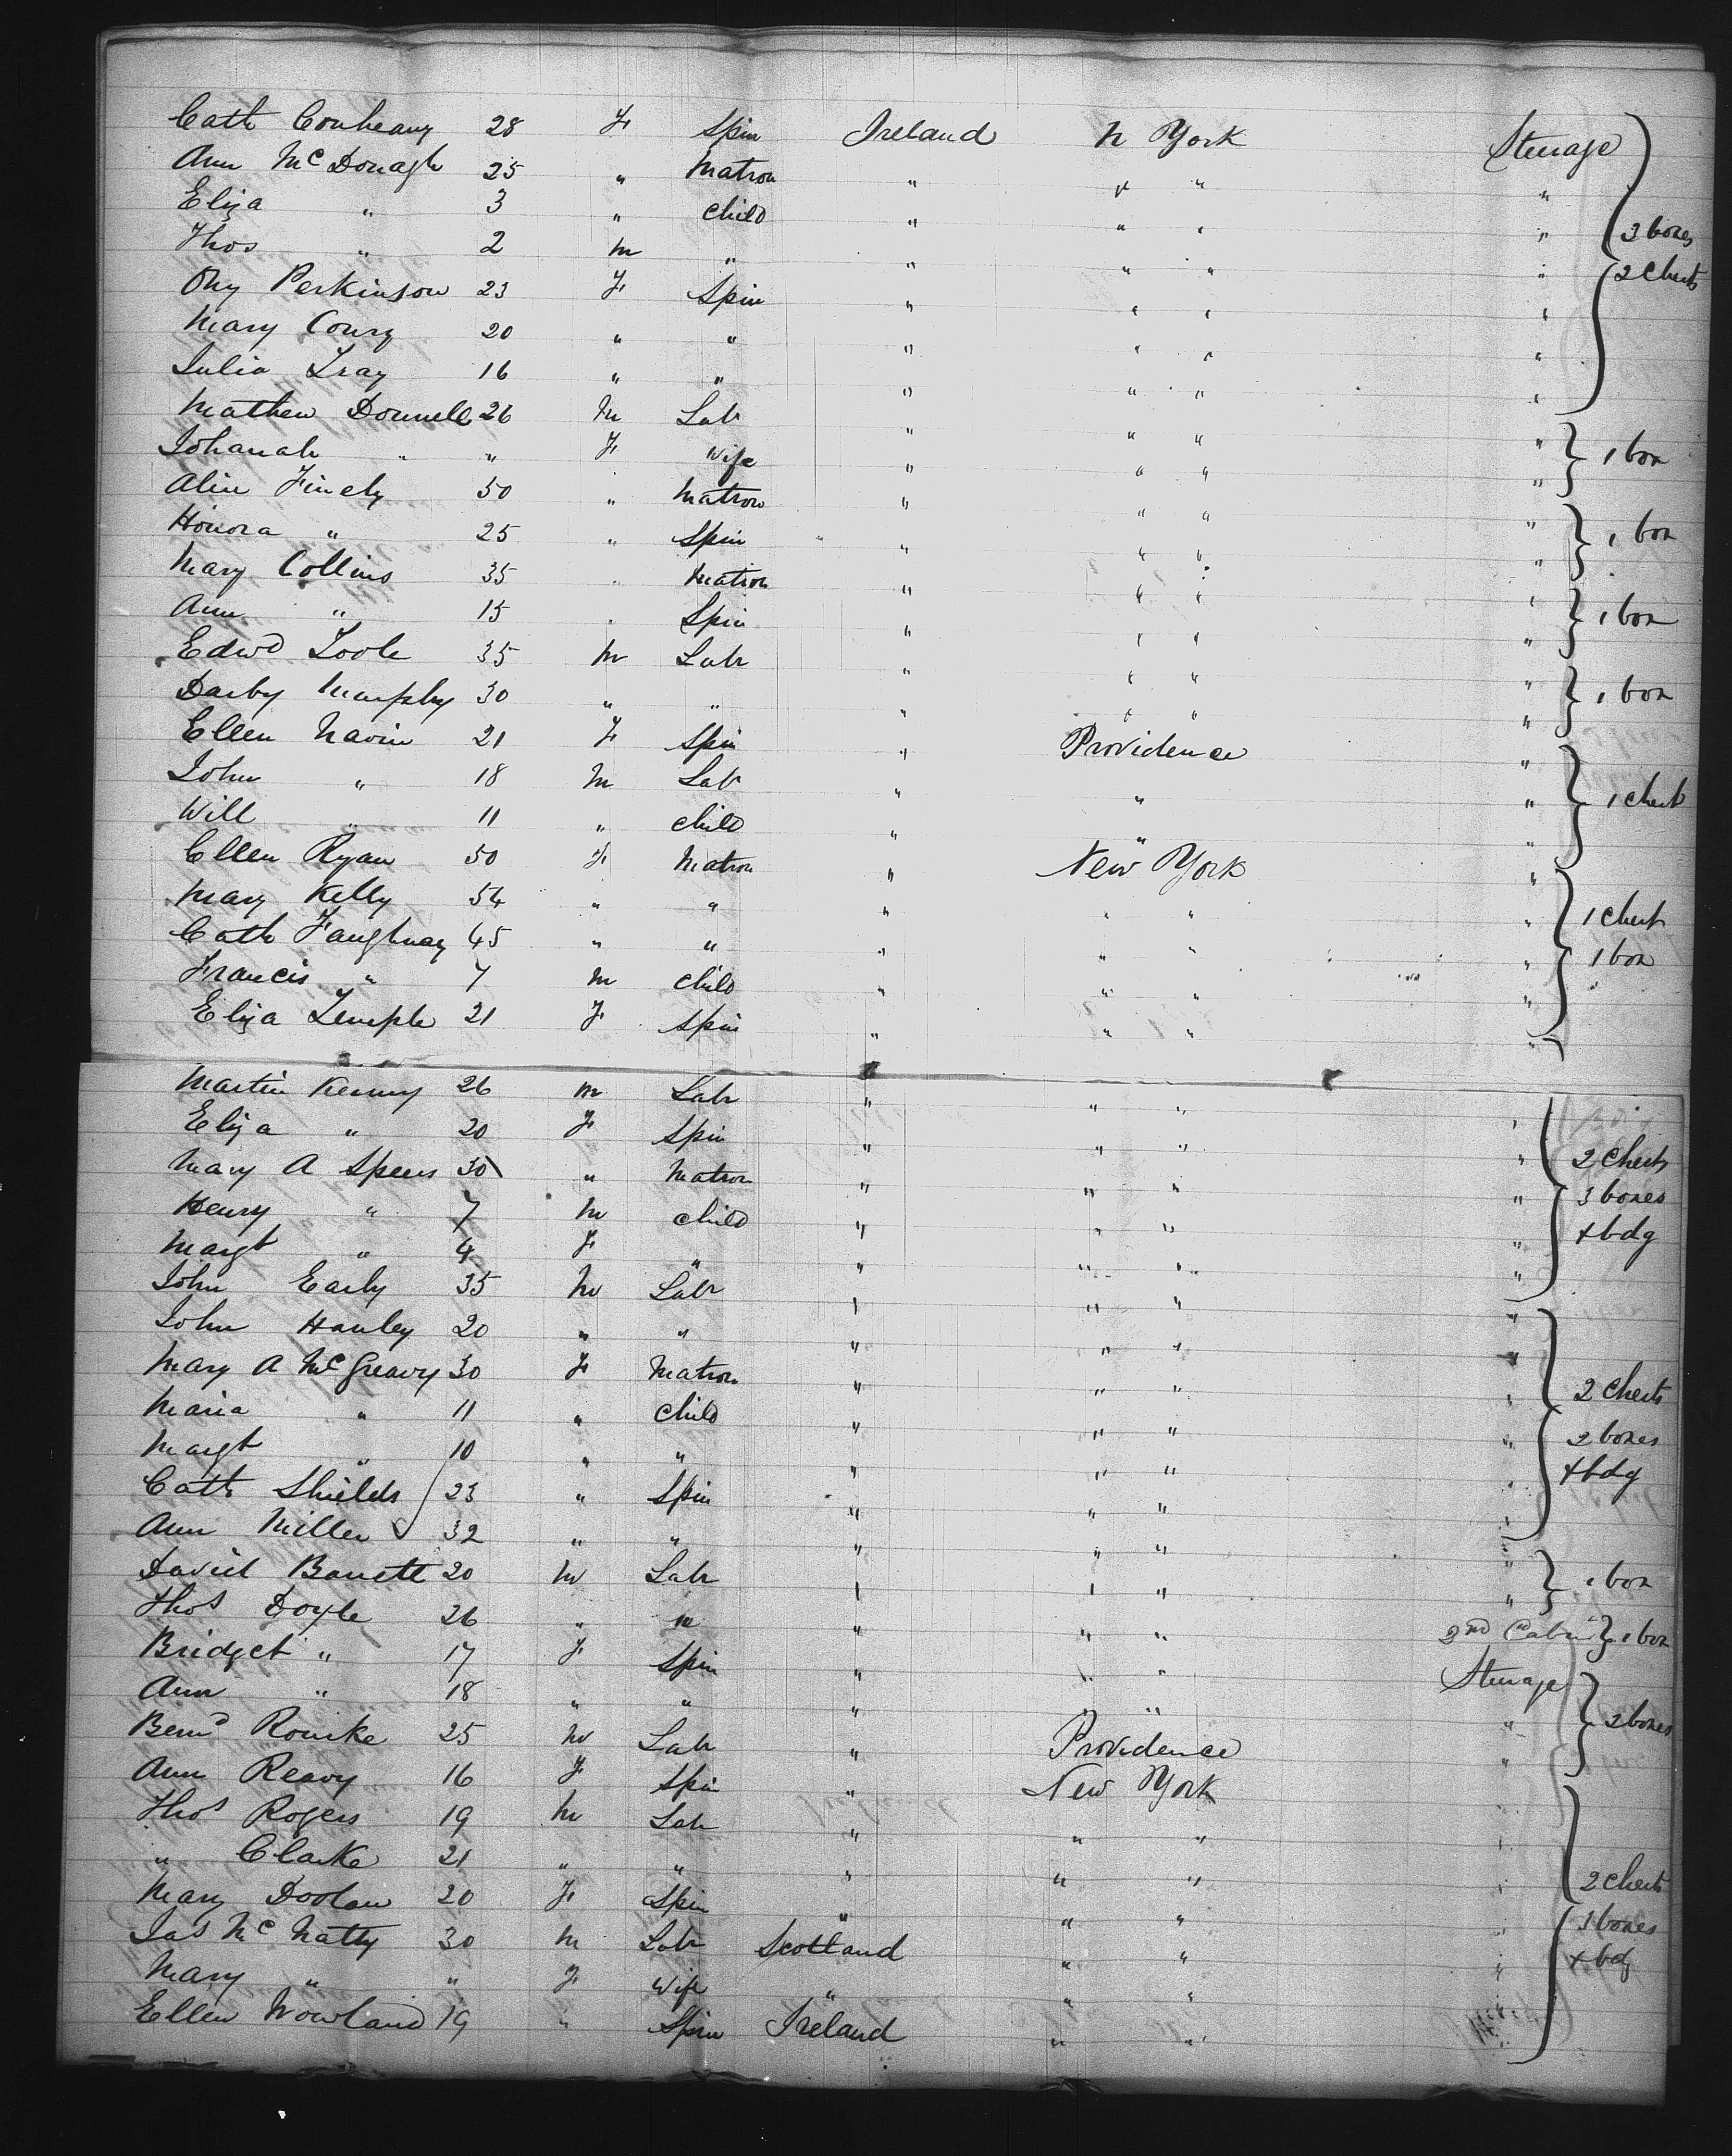 Cath Conheany 28 F Spin Ireland N York Steerage
Ann McDonagh 25 " Matron " " " "
Eliza " 3 " child " " " " 3 boxes
Thos " 2 m " " " " " 2 Chests
Ony Perkinson 23 F Spin " " " "
Mary Coury 20 " " " " " "
Julia Tray 16 " " " " " "
Mathew Donnell 26 m Lab " " " "
Johanah " " F Wife " " " " 1 box
Alice Finely 50 " Matron " " " "
Honora " 25 " Spin " " " " 1 box
Mary Collins 35 " Matron " " " "
Ann " 15 " Spin " " " " 1 box
Edwd Toole 35 m Labr " " " "
Darby Murphy 30 " " " " " " 1 box
Ellen Navin 21 F Spin " Providence "
John " 18 m Lab " " " 1 Chest
Will " 11 " child " " "
Ellen Ryan 50 F Matron " New York "
Mary Kelly 54 " " " " " " 1 Chest
Cath Faughnay 45 " " " " " " 1 box
Francis " 7 m child " " " "
Eliza Temple 21 F Spin " " " "
Martin Kenny 26 m Labr " " " "
Eliza " 20 F Spin " " " " 2 Chests
Mary A Speers 30 " Matron " " " " 3 boxes
Henry " 7 m child " " " " + bdg
Margt " 4 F " " " " "
John Early 35 m Labr " " " "
John Hanley 20 " " " " " "
Mary A McGreavy 30 F Matron " " " " 2 Chests
Maria " 11 " child " " " " 2 boxes
Margt " 10 " " " " " " + bdg
Cath Shields 23 " Spin " " " "
Ann Miller 32 " " " " " "
David Barrett 20 m Labr " " " " 1 box
Thos Doyle 26 " " " " " 2nd Cabin 1 box
Bridget " 17 F Spin " " " Steerage
Ann " 18 " " " " " " 2 boxes
Bernd Rourke 25 m Labr " Providence "
Ann Reavy 16 F Spin " New York "
Thos Rogers 19 m Labr " " " "
" Clarke 21 " " " " " " 2 Chests
Mary Doolan 20 F Spin " " " " 3 boxes
Jas McNatty 30 m Labr Scotland " " " + bdg
Mary " " F Wife " " " "
Ellen Nowland 19 " Spin Ireland " " "